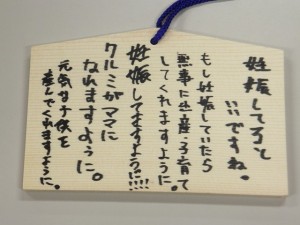 妊娠してると
いいですね。
もし妊娠していたら
無事に出産・子育て
してくれますように。
妊娠してますように!!!!
クルミがママに
なれますように。
元気な子供を
産んでくれますように。